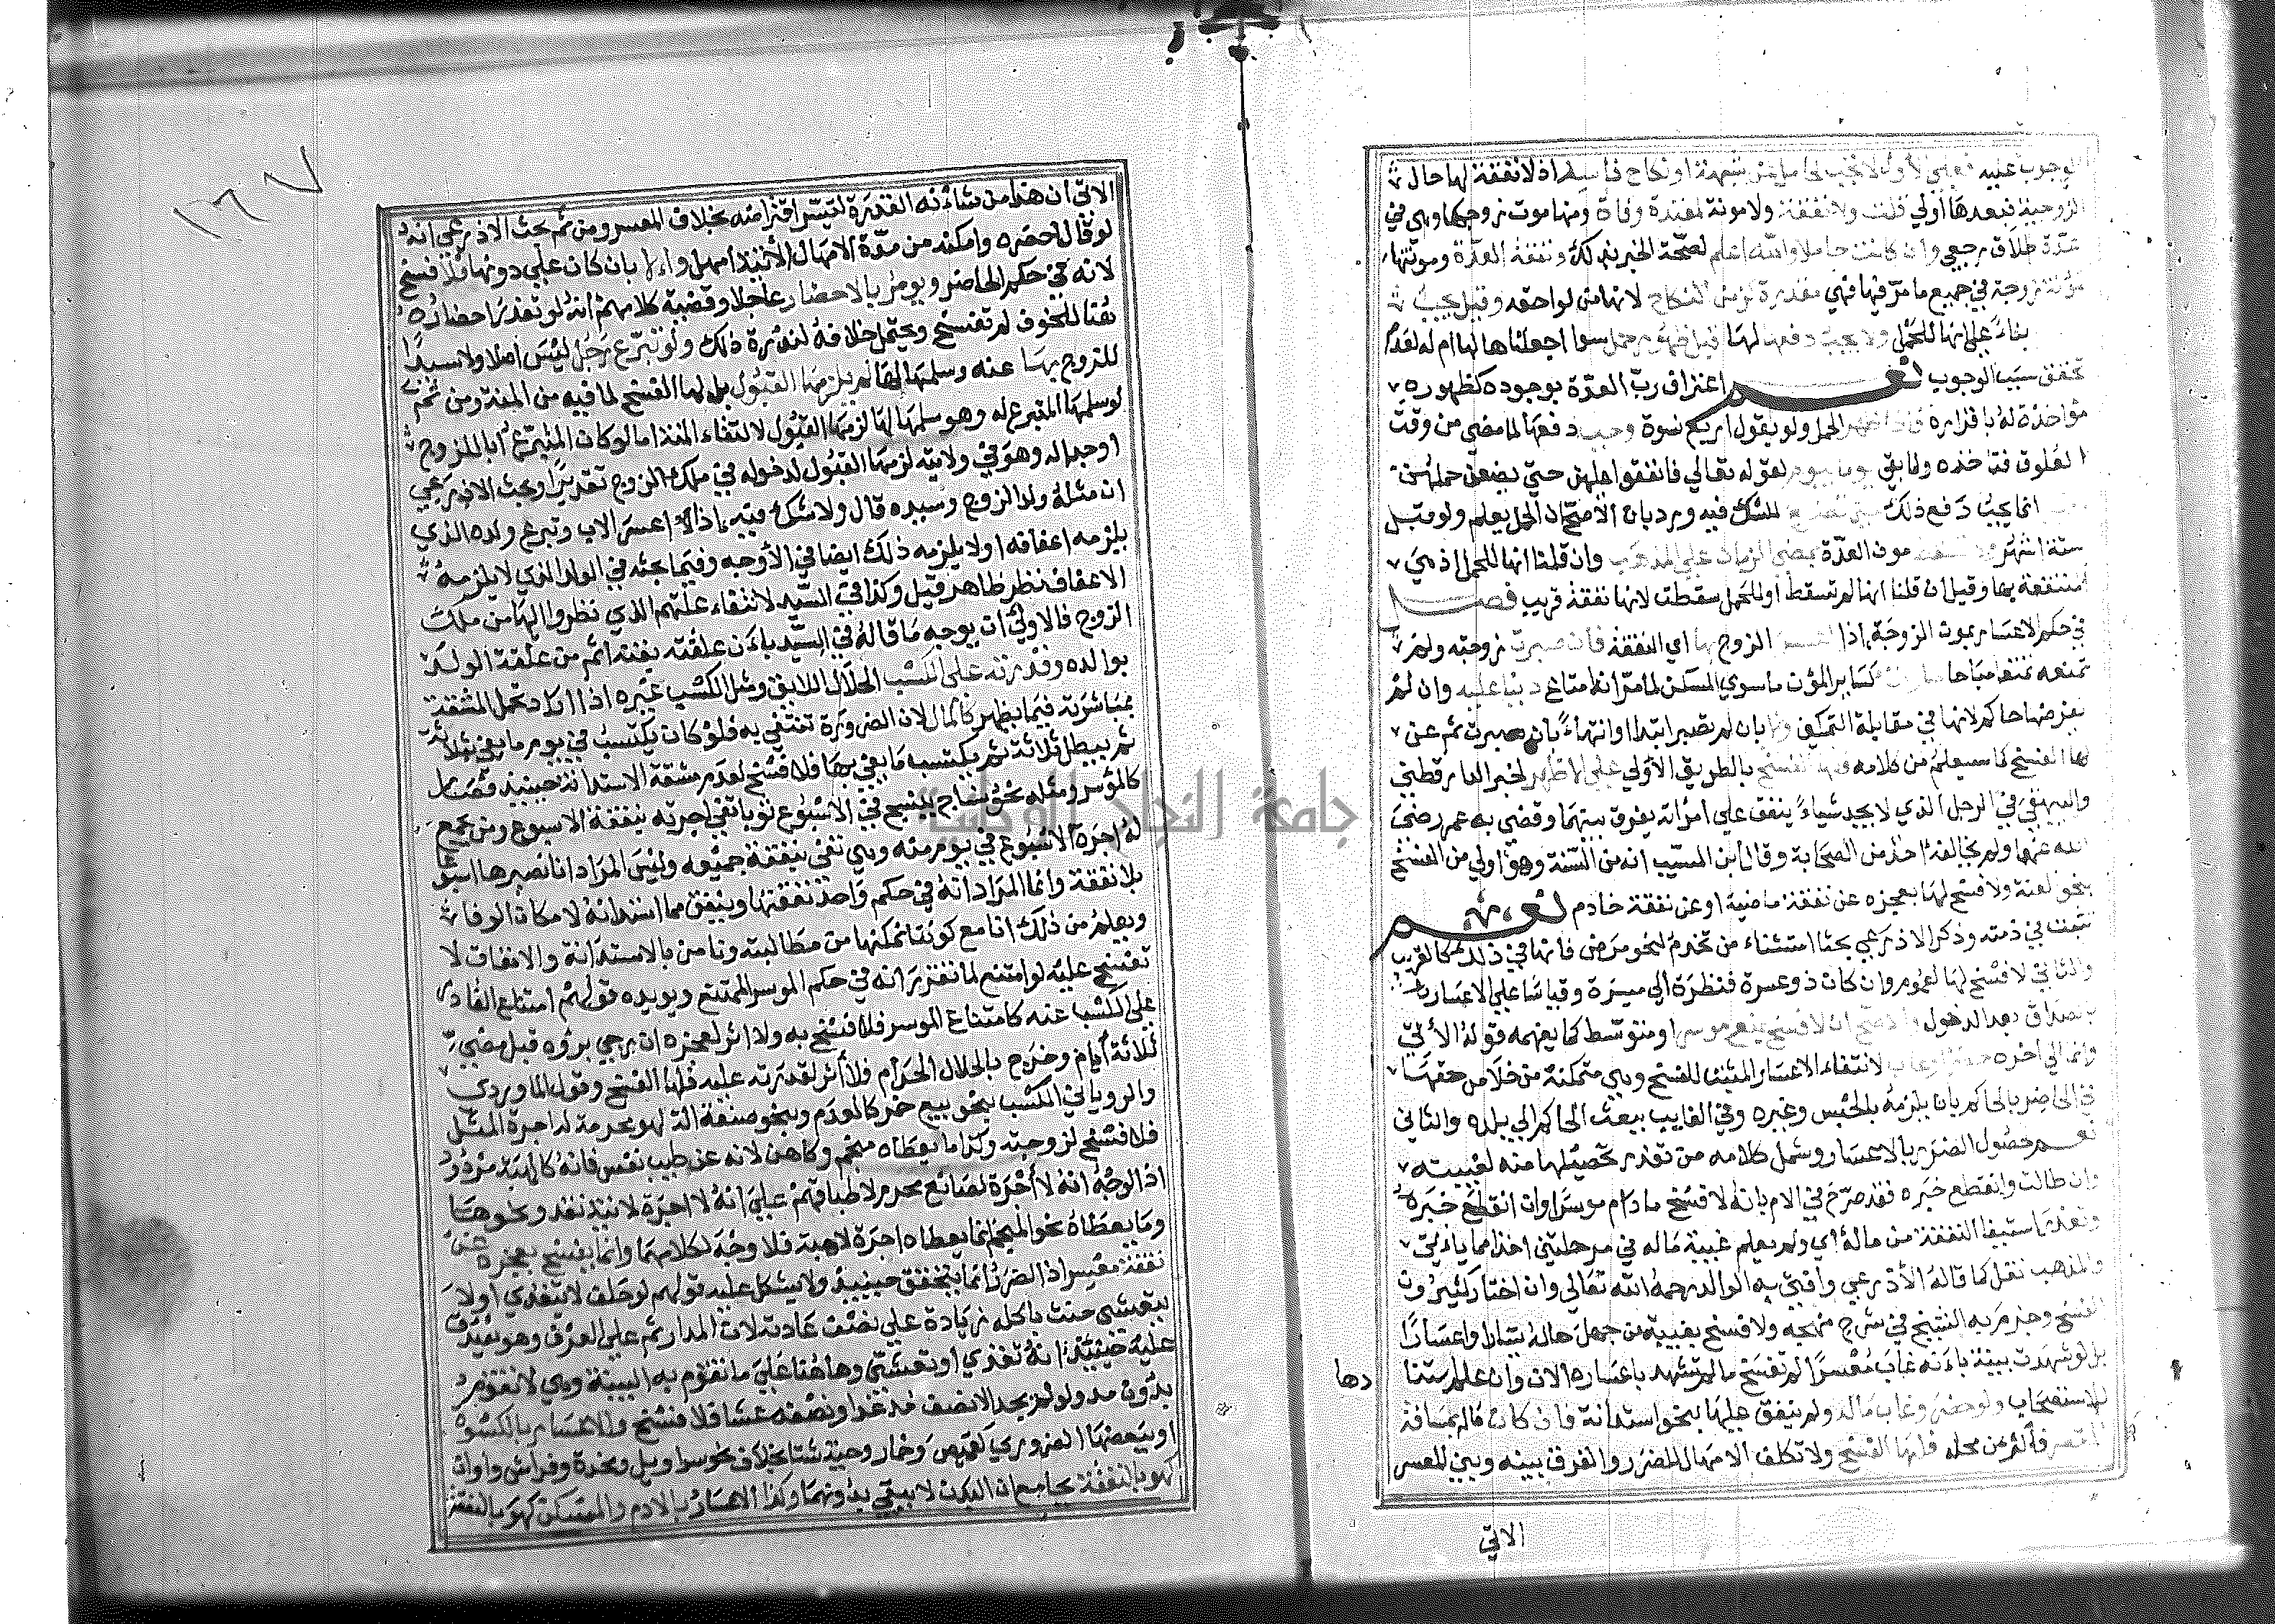 الوجوب عليه فعلى الأول لا تجب لحامل عن شبهة او نكاح فاسد اذ لا نفقة لها حال
الزوجية فبعدها أولى قلت ولا نفقة ولا مونة لمعتدة وفاة ومنها موت زوجها وهي في
عدة طلاق رجعي وان كانت حاملا والله اعلم لصحة الخبر بذلك ونفقة العدة وموتتها
كمؤنة زوجة في جميع ما مر فيها فهي مقدرة كزمن النكاح لانها من لواحقه وقيل تجب
بناءً على انها للحمل ولا يجب دفعها لها قبل ظهور حمل سوا اجعلناها لها ام له لعدم
تحقق سبب الوجوب نعم اعتراف رب العدة بوجوده كظهوره
مؤاخذة له باقراره فاذا ظهر الحمل ولو بقول اربع نسوة وجب دفعها لما مضى من وقت
العلوق فتاخذه ولما بقي يوما بيوم لقوله تعالى فانفقوا عليهن حتى يضعن حملهن
انما يجب دفع ذلك حتى تضع للشك فيه ورد بان الأصح ان الحمل يعلم ولو قبل
ستة اشهر ولا تسقط مون العدة بمضي الزمان على المذهب وان قلنا انها للحمل اذ هي
المنتفعة بها وقيل ان قلنا انها لم تسقط أو للحمل سقطت لانها نفقة قريب فصل
في حكم الاعسار بمون الزوجة اذا اعسر الزوج بها أي النفقة فان صبرت زوجته ولم
تمنعه تمتعا مباحا صارت كسائر المؤن ما سوى المسكن لما مر انه امتاع دينا عليه وان لم
يفرضها حاكم لانها في مقابلة التمكين والا بان لم تصبر ابتدا او انتهاءً بان صبرت ثم عن
لها الفسخ كما سيعلم من كلامه فلها الفسخ بالطريق الآولى على الاظهر لخبر الدارقطني
والبيهقي في الرجل الذي لا يجد شياءً ينفق على امرأته يفرق بينهما وقضى به عمر رضى
الله عنه ولم يخالفه احد من الصحابة وقال ابن المسيب انه من السنة وهو اولى من الفسخ
بنحو العنة ولا فسخ لها بعجزه عن نفقة ماضية او عن نفقة خادم نعم
تثبت في ذمته وذكر الاذرعي بحثا استثناء من تخدم لنحو مرض فانها في ذلك كالقريب
والثاني لا فسخ لها لعموم وان كان ذو عسرة فنظرة الى ميسرة وقياسا على الاعسار
بالصداق بعد الدخول والاصح ان لا فسخ بمنع موسر او متوسط كما يفهمه قوله الأتي
وانما الى اخره حضر او غاب لانتفاء الاعسار المثبت للفسخ وهي متمكنة من خلاص حقها
في الحاضر بالحاكم بان يلزمه بالحبس وغيره وفي الغايب يبعث الحاكم الى بلده والثاني
نعم لحصول الضرر بالاعسار وشمل كلامه من تعذر تحصيلها منه لغيبته
وان طالت وانقطع خبره فقد صرح في الام بانه لا فسخ ما دام موسرا وان انقطع خبره
وتعذر استيفا النفقة من ماله أي ولم يعلم غيبة ماله في مرحلتين اخذا مما ياءتي
والمذهب نقل كما قاله الأذرعي وأفتى به الوالد رحمه الله تعالى وان اختار كثيرون
الفسخ وجزم به الشيخ في شرح منهجه ولا فسخ بغيبة من جهل حاله يسارا واعسارًا
بل لو شهدت بينة باءنه غاب معسرًا لم تفسخ ما لم تشهد باعساره الان وان علم استنا
دها
للاستصحاب ولو حضر وغاب ماله ولم ينفق عليها بنحو استدانة فان كان ماله بمسافة
القصر فأكثر من محله فلها الفسخ ولا تكلف الامهال للضرر والفرق بينه وبين المعسر
الاتي
١٦٧
الاتي ان هذا من شاءنه القدرة لتيسر اقتراضه بخلاف المعسر ومن ثم بحث الاذرعي انه
لو قال احضره وامكنه من مدة الامهال الأتية امهل والا بان كان على دونها فلا فسخ
لانه في حكم الحاضر ويومر بالاحضار عاجلا وقضية كلامهم انه لو تعذر احضاره
هنا للخوف لم تفسخ ويحتمل خلافه لندرة ذلك ولو تبرع رجل ليس اصلا ولا سيدًا
للزوج بها عنه وسلمها لها لم يلزمها القبول بل لها الفسخ لما فيه من المنة ومن ثم
لو سلمها المتبرع له وهو سلمها لها لزمها القبول لانتفاء المنة اما لو كان المتبرع ابا للزوج
او جدا له وهو في ولايته لزمها القبول لدخوله في ملك الزوج تقديرًا وبحث الاذرعي
ان مثله ولد الزوج وسيده قال ولا شك فيه اذا اعسر الاب وتبرع ولده الذي
يلزمه اعفافه او لا يلزمه ذلك ايضا في الأوجه وفيما بحثه في الولد الذي لا يلزمه
الاعفاف نظر ظاهر قيل وكذا في السيد لانتفاء علتهم الذي نظروا اليها من ملك
الزوج فالاولى ان يوجه ما قاله في السيد باءن علقته بقنه اتم من علقة الولد
بوالده وقدرته على الكسب الحلال اللايق ومثل الكسب غيره اذا اراد تحمل المشقة
بمباشرته فيما يظهر كالمال لان الضرورة تنتفي به فلو كان يكتسب في يوم ما يفي بثلاثة
ثم يبطل ثلاثة ثم يكتسب ما يفي بها فلا فسخ لعدم مشقة الاستدانة حينيذ فصار
كالموسر ومثله نحو نساج ينسج في الاسبوع ثوبا تفي اجرته بنفقة الاسبوع ومن تجمع
له اجرة الاسبوع في يوم منه وهي تفي بنفقة جميعه وليس المراد انا نصبرها اسبوعا
بلا نفقة وانما المراد انه في حكم واجد نفقتها وينفق مما استدانه لامكان الوفا
ويعلم من ذلك انا مع كوننا نمكنها من مطالبته ونامره بالاستدانة والانفاق لا
تفسخ عليه لو امتنع لما تقرر انه في حكم الموسر الممتنع ويويده قولهم امتناع القادر
على الكسب عنه كامتناع الموسر فلا فسخ به ولا اثر لعجزه ان يرجى بروه قبل مضي
ثلاثة أيام وخرج بالحلال الحرام فلا أثر لقدرته عليه فلها الفسخ وقول الماوردي
والروياني الكسب بنحو بيع خمر كالعدم وبنحو صنعة الة لهو محرمة له اجرة المثل
فلا فسخ لزوجته وكذا ما يعطاه منجم وكاهن لانه عن طيب نفس فانه كالهبة مردود
اذ الوجه انه لا أجرة لصانع محرم لاطباقهم على انه لا اجرة لانية نقد ونحوها
وما يعطاه نحو المنجم انما يعطاه اجرة لا هبة فلا وجه لكلامهما وانما يفسخ بعجزه عن
نفقة معسر اذ الضرر انما يتحقق حينيذ ولا يشكل عليه قولهم لو حلف لا يتغدي او لا
يتعشى حنث باكله زيادة على نصف عادته لان المدار ثم على العرف وهو يصدق
عليه حينيذ انه تغدي او تعشى وها هنا على ما تقوم به البينة وهي لا تقوم
بدون مد ولو لم يجد الا نصف مد غدا ونصفه عشا فلا فسخ والاعسار بالكسوة
او ببعضها الضروري كقميص وخمار وجبة شتا بخلاف نحو سراويل ومخدة وفراش واوان
كهو بالنفقة بجامع ان البدن لا يبقى بدونهما وكذا الاعسار بالادم والمسكن كهو بالنفقة